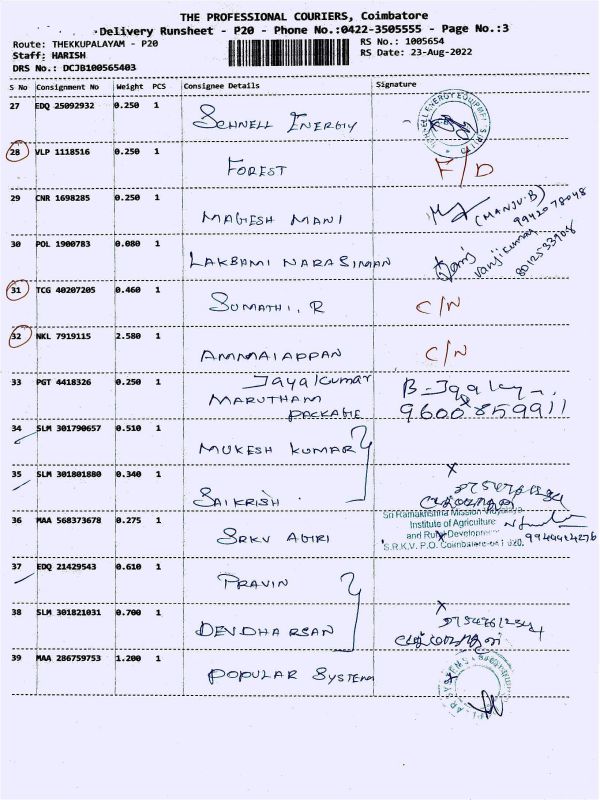 THE PROFESSIONAL COURIERS, Coimbatore
Delivery Runsheet - P20 - Phone No.:0422-3505555 - Page No.:3
Route: THEKKUPALAYAM - P20
RS No.: 1005654
Staff: HARISH
RS Date: 23-Aug-2022
DRS No.: DCJB100565403
S No Consignment No Weight PCS Consignee Details Signature
27 EDQ 25092932 0.250 1 SCHNELL ENERGIY
28 VLP 1118516 0.250 1 FOREST F/D
29 CNR 1698285 0.250 1 MAGESH MANI (MANJU.B)
9942078048
30 POL 1900783 0.080 1 LAKBAMI NARASIMAN
8012533908
31 TCG 40207205 0.460 1 SUMATHI.R C/N
32 NKL 7919115 2.580 1 AMMAIAPPAN C/N
33 PGT 4418326 0.250 1 Jayalkumar
MARUTHAM
PACKAGE
9600859911
34 SLM 301790657 0.510 1 MUKESH KUMAR
35 SLM 301801880 0.340 1 SAIKRISH
36 MAA 568373678 0.275 1 SRKV AGIRI
Sri Ramakrishna Mission Vidyalaya
Institute of Agriculture
and Rural Development
S.R.K.V. P.O. Coimbatore-641 020.
9944424276
37 EDQ 21429543 0.610 1 PRAVIN
38 SLM 301821031 0.700 1 DEVDHARSAN
39 MAA 286759753 1.200 1 POPULAR SYSTEM